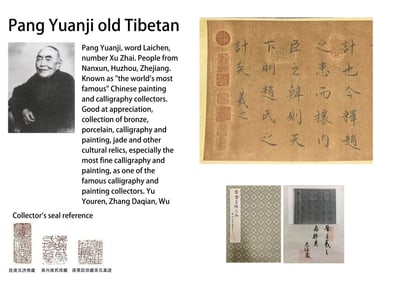 Pang Yuanji old Tibetan
Pang Yuanji, word Laichen,
number Xu Zhai. People from
Nanxun, Huzhou, Zhejiang.
Known as "the world's most
famous" Chinese painting
and calligraphy collectors.
Good at appreciation,
collection of bronze,
porcelain, calligraphy and
painting, jade and other
cultural relics, especially the
most fine calligraphy and
painting, as one of the
famous calligraphy and
painting collectors. Yu
Youren, Zhang Daqian, Wu
Collector's seal reference
計也今釋趙
之患而攘內
臣之韓則天
下明趙民之
計矣 羲之